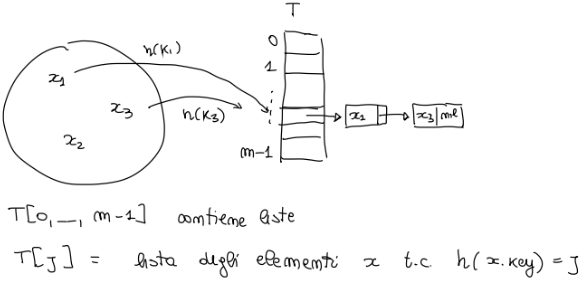 T
h(k1)
0
x1
1
x3
h(k3)
x1
x3 nil
x2
m-1
T[0, _, m-1] contiene liste
T[J] = lista degli elementi x t.c. h(x.key) = J